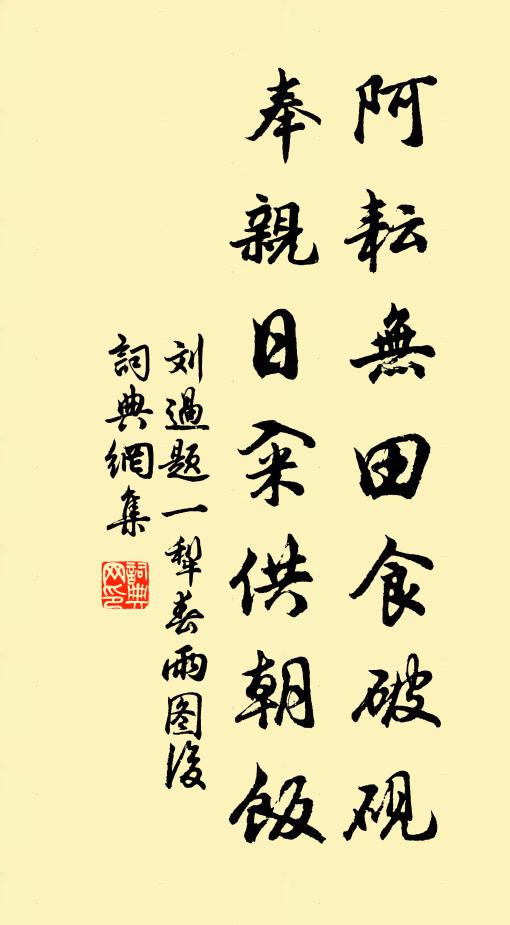 阿耘無田食破硯
奉親日籴供朝飯
刘過題一犁春雨图後
詞典網集
詞典网印